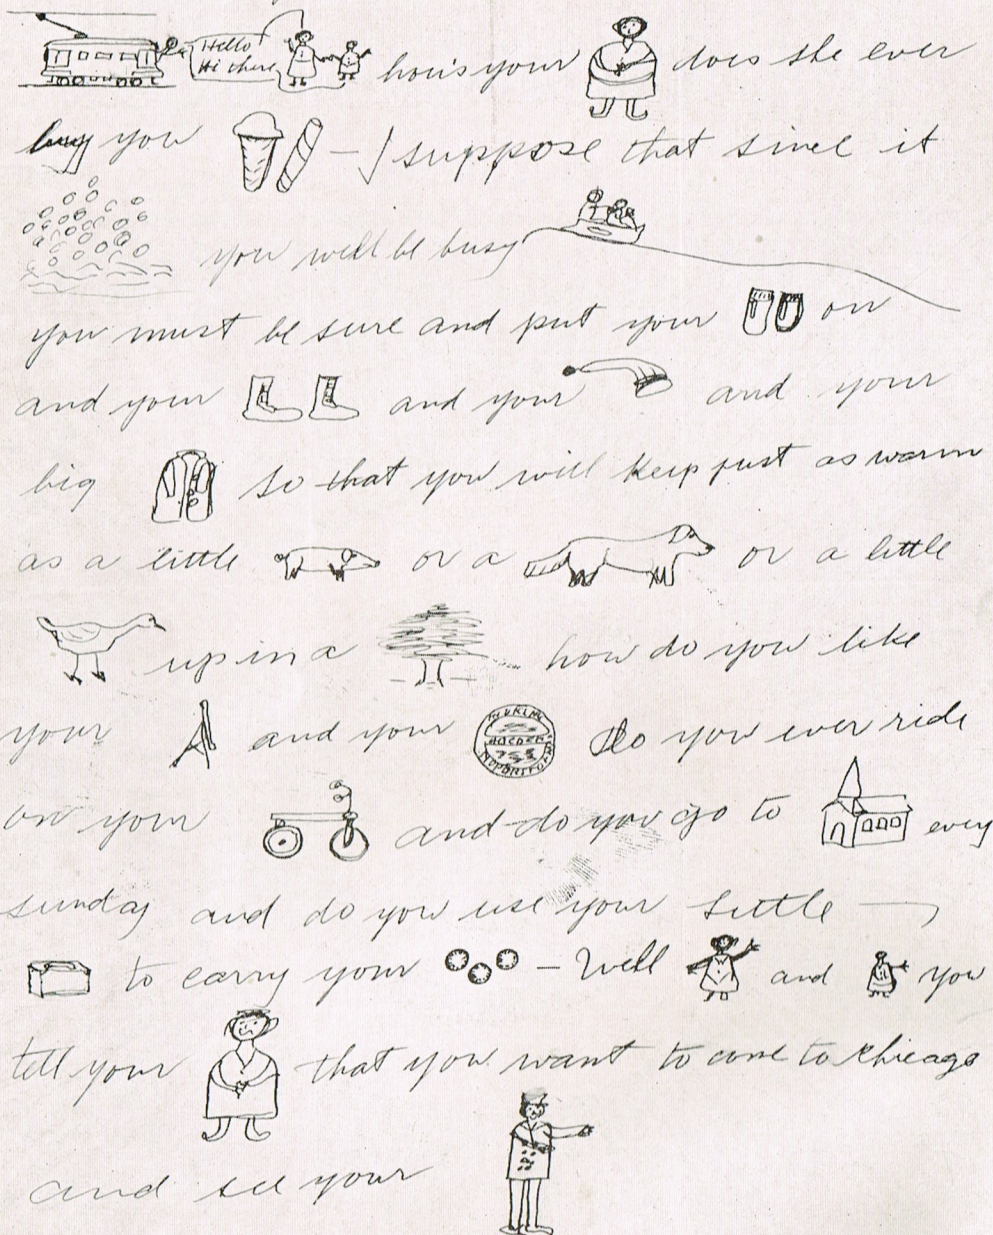 Hello
Hi there
how's your does she ever
buy you - I suppose that since it
you will be busy
you must be sure and put your on
and your and your and your
big so that you will keep just as warm
as a little or a or a little
up in a how do you like
your and your Do you ever ride
on your and do you go to every
sunday and do you use your little
to carry your - Well and you
tell your that you want to come to Chicago
and see your